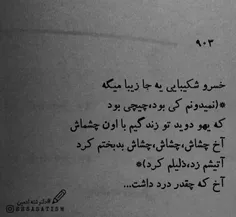 ۹۰۳
خسرو شکیبایی یه جا زیبا میگه
*(نمیدونم کی بود،چیچی بود
که یهو دوید تو زندگیم با اون چشماش
آخ چشاش،چشاش،چشاش بدبختم کرد
آتیشم زد،ذلیلم کرد)*
آخ که چقدر درد داشت...